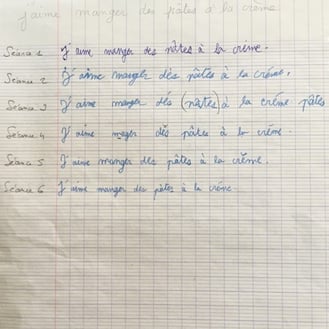 j'aime manger des pâtes à la crème
Séance 1 J'aime manger des pâtes à la crème.
Séance 2 J'aime manger dés pâtes à la créme.
Séance 3 J'aime manger dés (pâtes) à la créme pâtes
Séance 4 J'aime mager des pâtes à la crème.
Séance 5 J'aime manger des pâtes à la crème.
Séance 6 J'aime manger des pâtes à la crème.